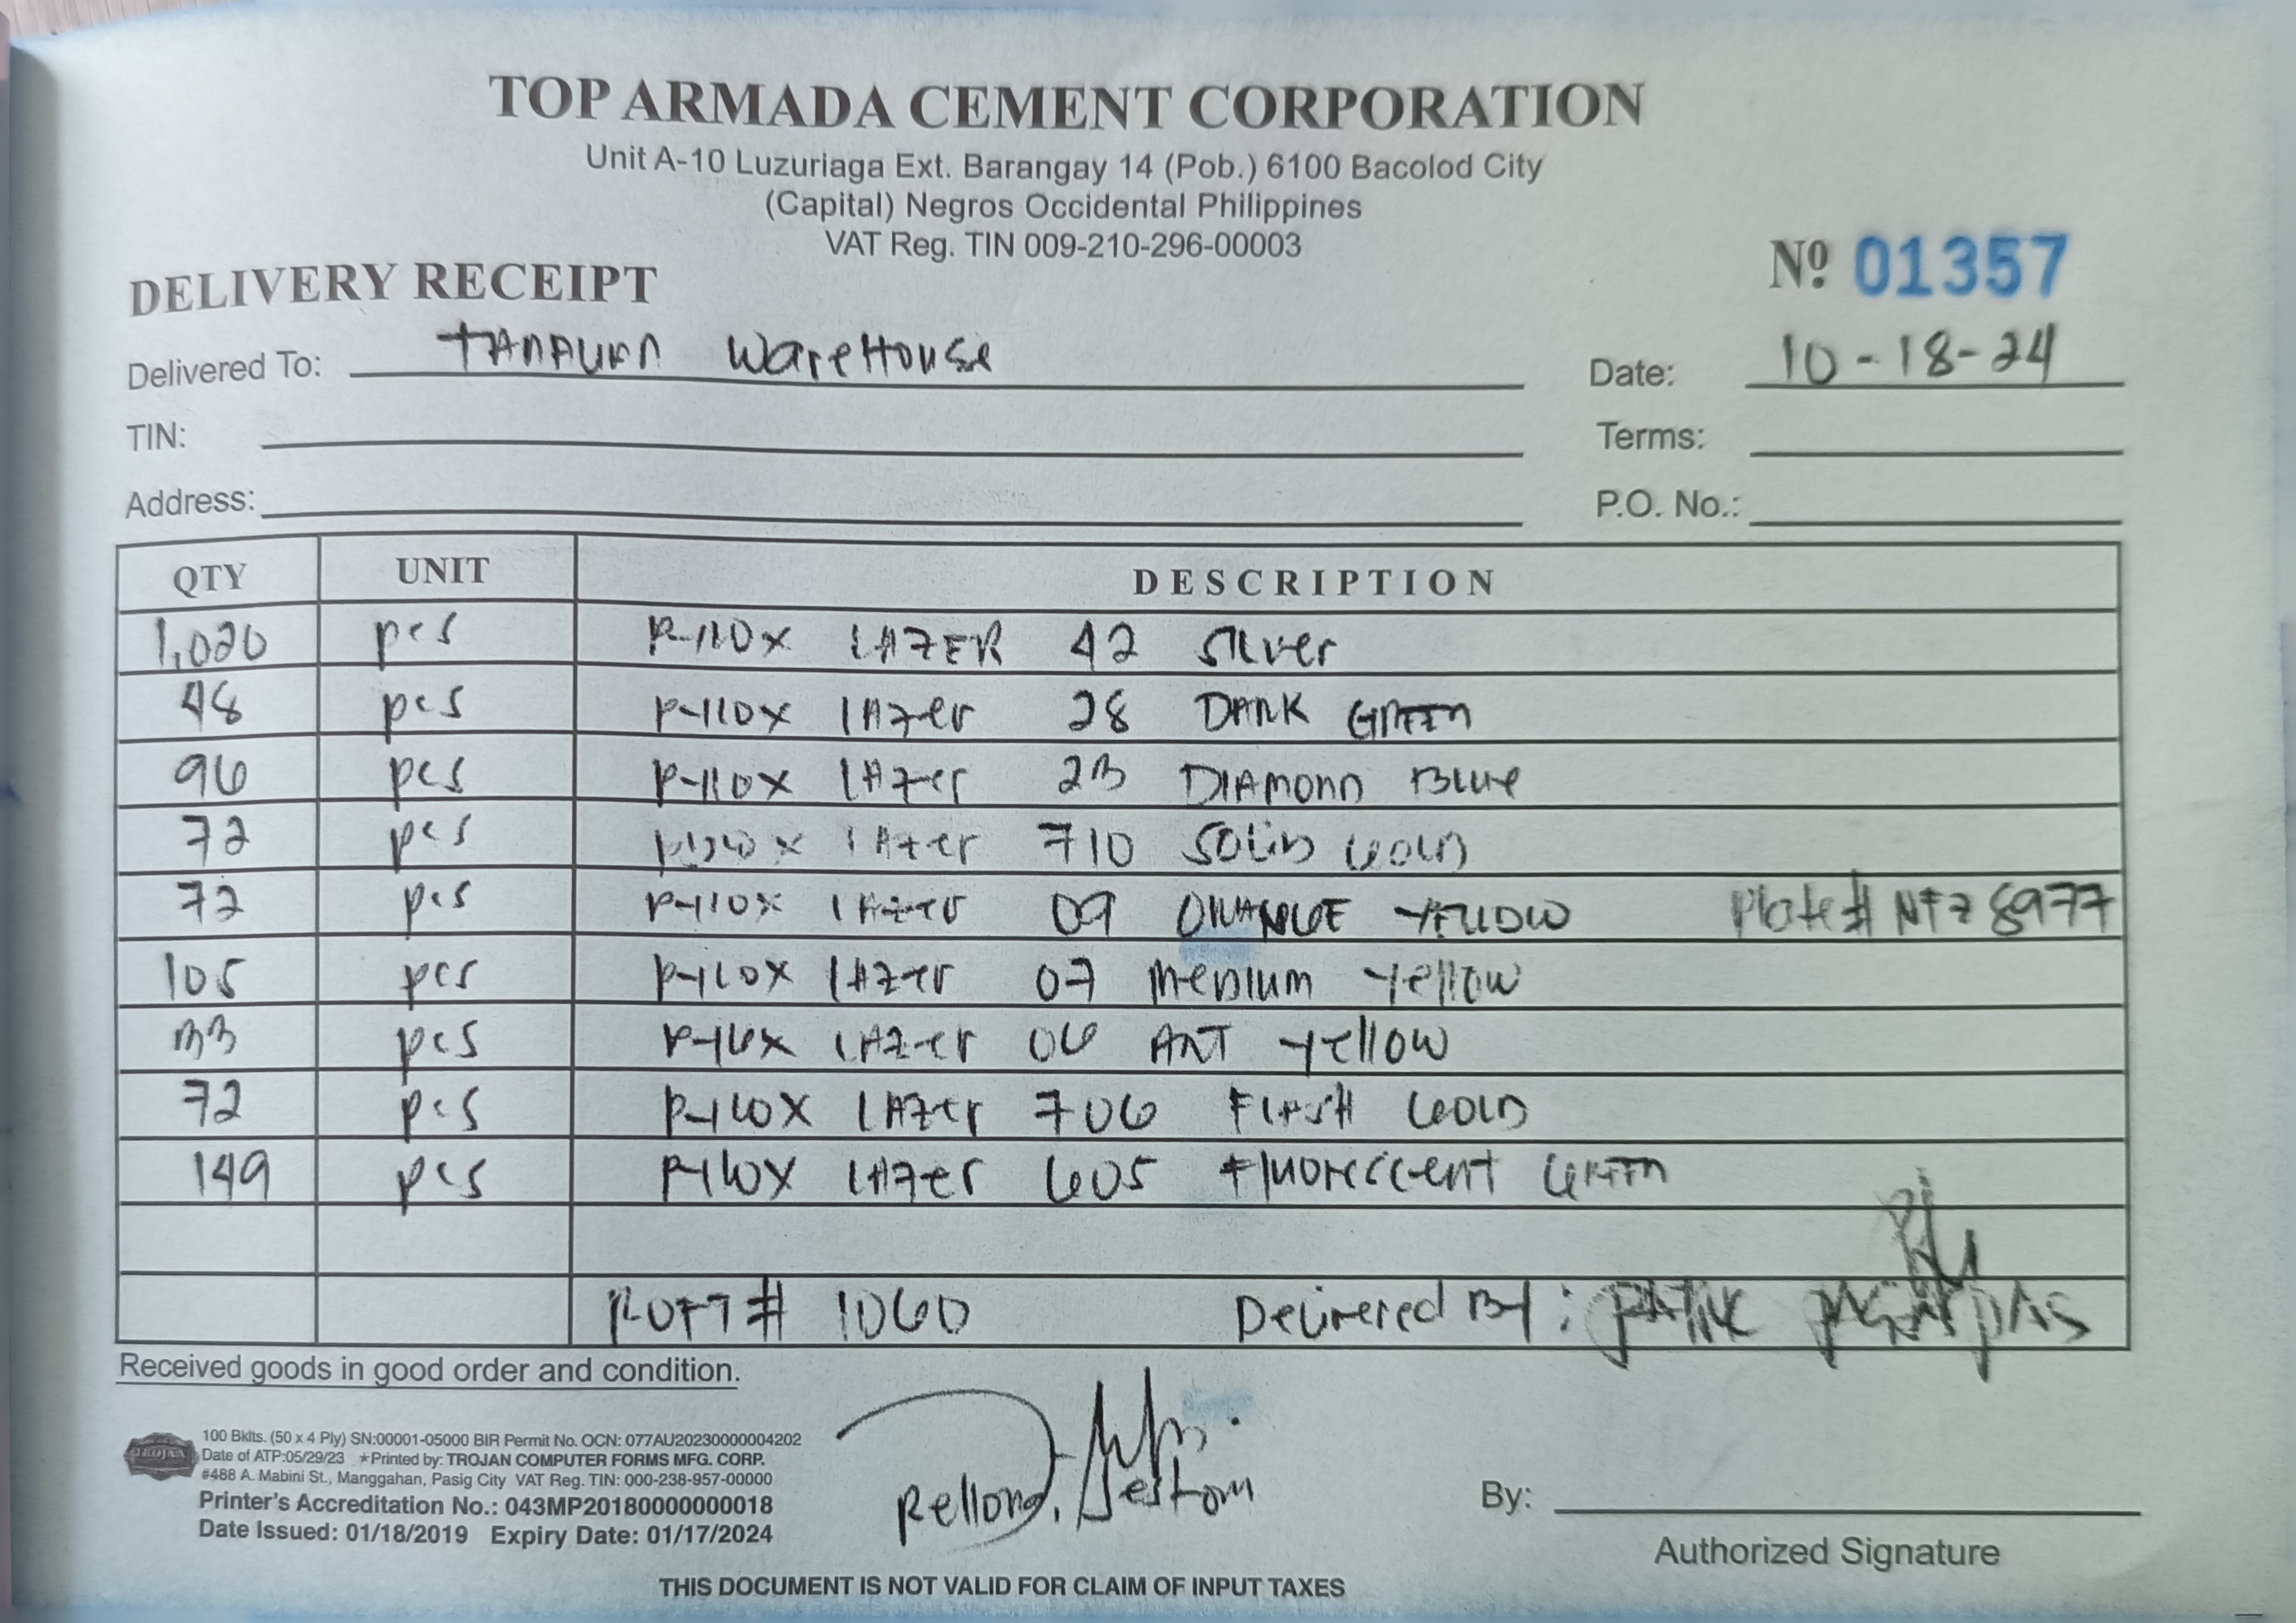 TOP ARMADA CEMENT CORPORATION
Unit A-10 Luzuriaga Ext. Barangay 14 (Pob.) 6100 Bacolod City
(Capital) Negros Occidental Philippines
VAT Reg. TIN 009-210-296-00003
DELIVERY RECEIPT Nº 01357
Delivered To: TANAUAN WareHouse Date: 10-18-24
TIN: Terms:
Address: P.O. No.:
QTY UNIT DESCRIPTION
1,020 pcs P-110x LAZER 42 Silver
48 pcs P-110x LAzer 28 DARK GREEN
96 pcs P-110x LAzer 23 DIAMOND Blue
72 pcs LAzer 710 SOLID GOLD
72 pcs P-110x LAzer 09 ORANGE YELLOW Plate# 8977
105 pcs P-110x LAzer 07 Medium Yellow
33 pcs LAzer 06 ANT Yellow
72 pcs P-110x LAzer 706 Flash GOLD
149 pcs P-110x LAzer 605 Fluorescent GREEN
# 1060 Delivered By:
Received goods in good order and condition.
TROJAN
100 Bklts. (50 x 4 Ply) SN:00001-05000 BIR Permit No. OCN: 077AU20230000004202
Date of ATP:05/29/23 ★Printed by: TROJAN COMPUTER FORMS MFG. CORP.
#488 A. Mabini St., Manggahan, Pasig City VAT Reg. TIN: 000-238-957-00000
Printer's Accreditation No.: 043MP20180000000018
Date Issued: 01/18/2019 Expiry Date: 01/17/2024
By:
Authorized Signature
THIS DOCUMENT IS NOT VALID FOR CLAIM OF INPUT TAXES